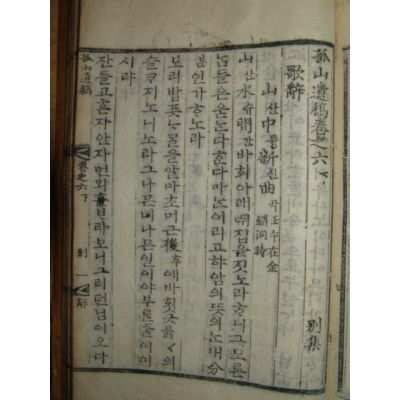 孤山遺稿卷之六 別集
歌辭
山산中듕新신曲곡 壬午在金鎖洞時
山산水슈間간바회아래뛰집을짓노라ᄒᆞ니그모론
ᄂᆞᆷ들은욷ᄂᆞᆫ다ᄒᆞᆫ다마ᄂᆞᆫ어리고햐암의뜻의ᄂᆞᆫ내分
분인가ᄒᆞ노라
보리밥픗ᄂᆞᄆᆞᆯ을알마초머근後후에바횟긋믉ᄀᆞ의
슬ᄏᆞ지노니노라그나믄녀나믄일이야부ᄅᆞᆯ줄이이
시랴
잔들고혼자안자먼뫼흘ᄇᆞ라보니그리던님이오다
孤山遺稿 卷之六下 別一 辭